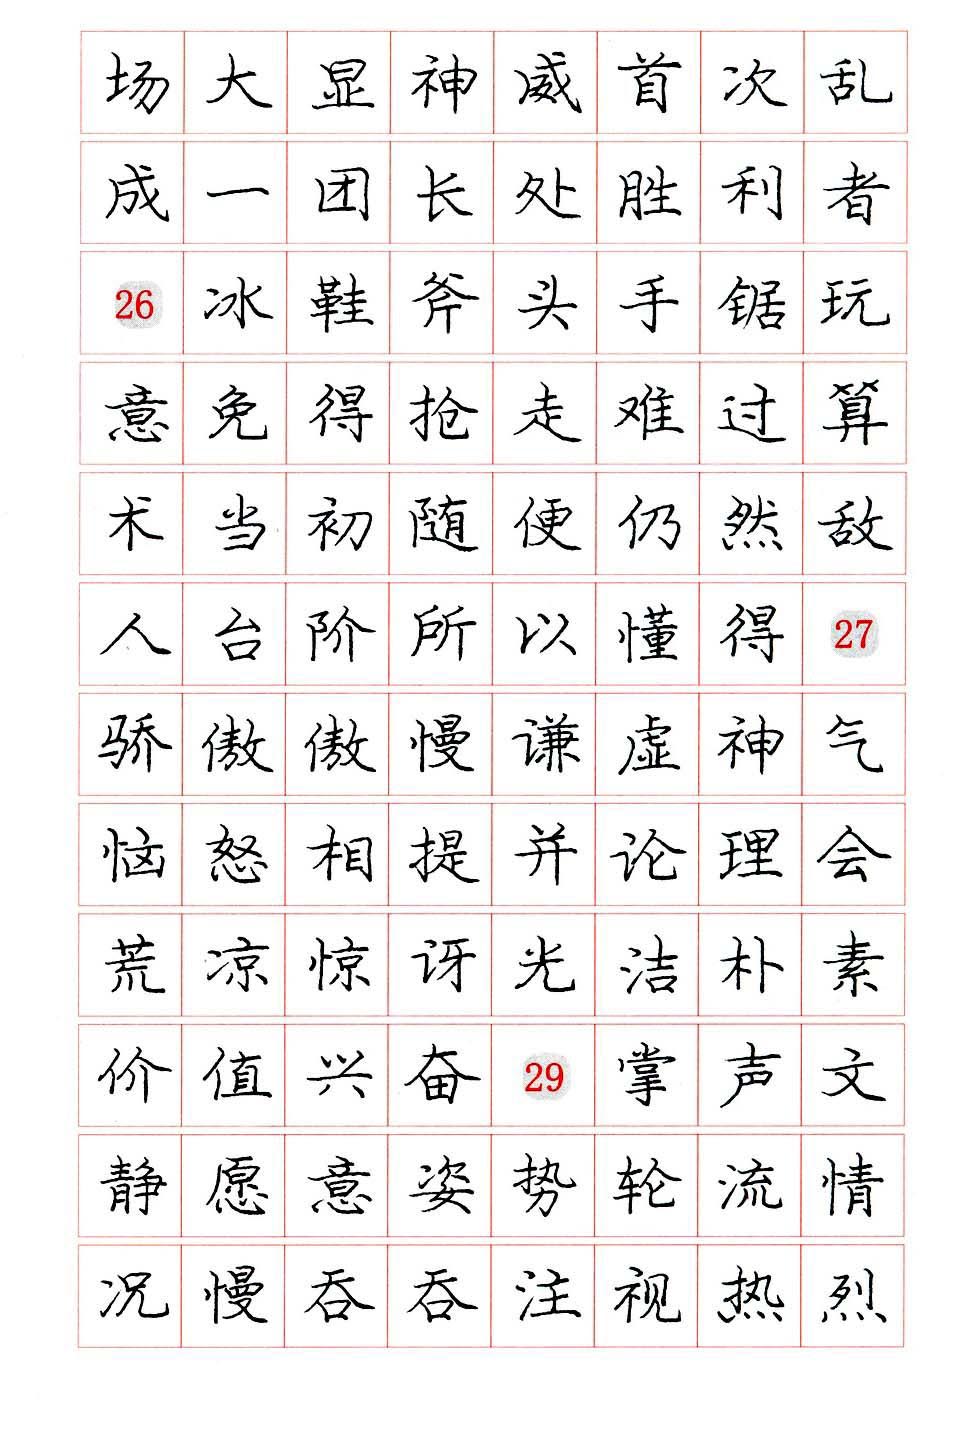 场大显神威首次乱
成一团长处胜利者
26冰鞋斧头手锯玩
意免得抢走难过算
术当初随便仍然敌
人台阶所以懂得27
骄傲傲慢谦虚神气
恼怒相提并论理会
荒凉惊讶光洁朴素
价值兴奋29掌声文
静愿意姿势轮流情
况慢吞吞注视热烈